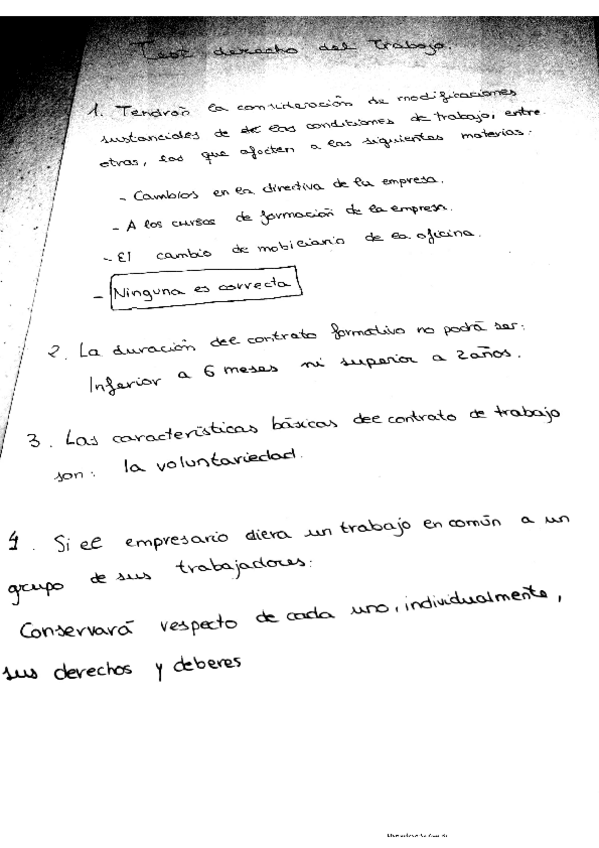 Test derecho del Trabajo.
1. Tendrán la consideración de modificaciones
sustanciales de de las condiciones de trabajo, entre
otras, las que afecten a las siguientes materias:
- Cambios en la directiva de la empresa.
- A los cursos de formación de la empresa.
- El cambio de mobiliario de la oficina.
- Ninguna es correcta
2. La duración del contrato formativo no podrá ser:
Inferior a 6 meses ni superior a 2 años.
3. Las características básicas del contrato de trabajo
son: la voluntariedad.
4. Si el empresario diera un trabajo en común a un
grupo de sus trabajadores:
Conservará respecto de cada uno, individualmente,
sus derechos y deberes